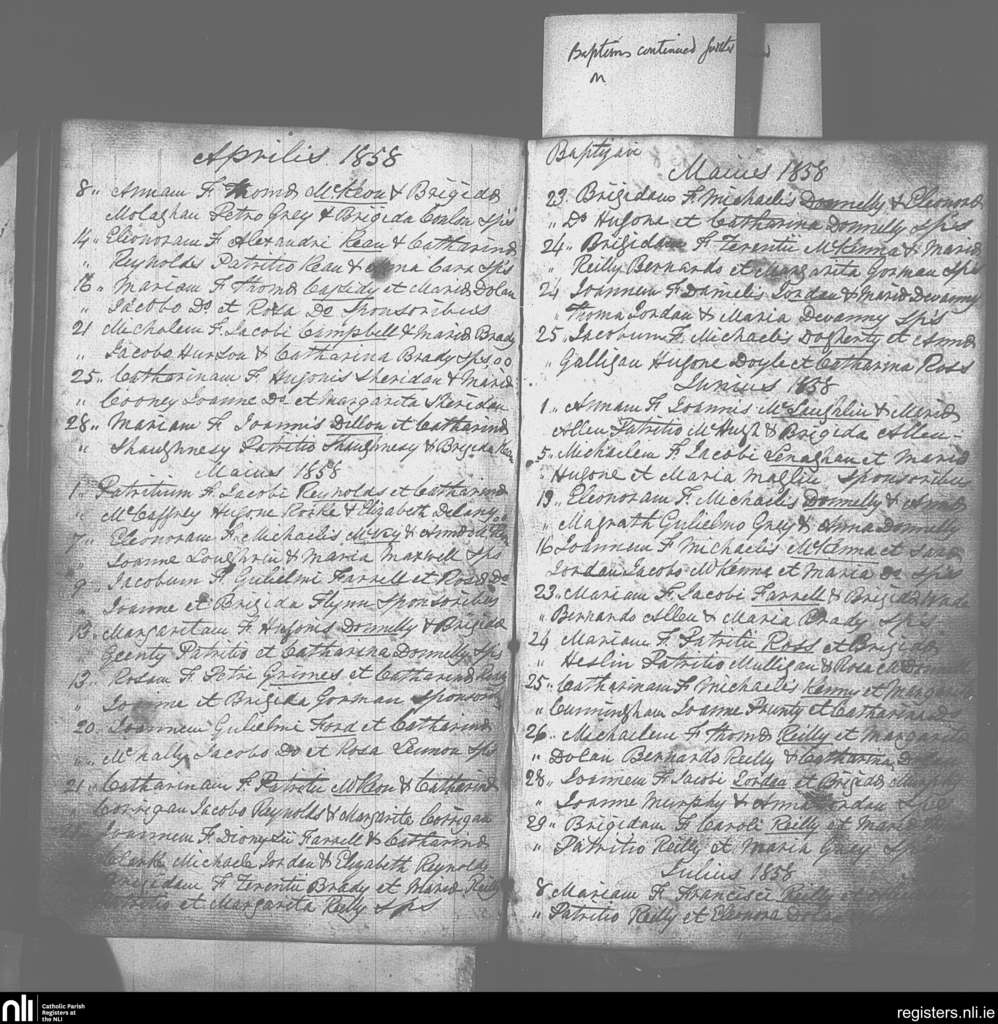 Baptisms continued further
on
Aprilis 1858
8 " Annam F. Thomæ McKeon & Brigidæ
Molaghan Petro Gray & Brigida Conlon Sp's
14 " Elionoram F. Alexandri Kean & Catharinæ
" Reynolds Patritio Kean & Anna Carr Sp's
16 " Mariam F. Thomæ Cassidy et Mariæ Dolan
" Jacobo Do et Rosa Do Sponsoribus
21 Michalem F. Jacobi Campbell & Mariæ Brady
" Jacobo Hurson & Catharina Brady Sps
25 " Catharinam F. Hugonis Sheridan & Mariæ
" Cooney Joanne Do et Margarita Sheridan
28 " Mariam F. Joannis Dillon et Catharinæ
" Shaughnesy Patritio Shaughnesy & Brigida
Maius 1858
1 " Patritium F. Jacobi Reynolds et Catharinæ
" McCaffrey Hugone Rorke & Elizabeth Delany
7 " Eleonoram F. Michaelis McKey &
" Joanne Loughrin & Maria Maxwell Sps
9 " Jacobum F. Gulielmi Farrell et Rosæ Do
" Joanne et Brigida Flynn Sponsoribus
13 " Margaritam F. Hugonis Donnelly & Brigida
" Geenty Patritio et Catharina Donnelly Sps
13 " Rosam F. Petri Grimes et Catharinæ
" Joanne et Brigida Gorman Sponsoris
20 " Joannem Gulielmi Ford et Catharinæ
" " McNally Jacobo Do et Rosa Lennon Sps
21 " Catharinam F. Patritii McKeon & Catharinæ
Corrigan Jacobo Reynolds & Margarita Corrigan
Joannem F. Dionysii Farrell & Catharinæ
Clarke Michaele Jordan & Elizabeth Reynolds
Brigidam F. Terentii Brady et Mariæ Reilly
Patritio et Margarita Reilly Sps
Baptizavi
Maius 1858
23 Brigidam F. Michaelis Donnelly & Eleonoræ
" Do Hugone et Catharina Donnelly Sps
24 " Brigidam F. Terentii McKenna & Mariæ
" Reilly Bernardo et Margarita Gorman Sps
24 Joannem F. Danielis Jordan & Mariæ Devanny
" Thoma Jordan & Maria Devanny Sps
25 " Jacobum F. Michaelis Dogherty et Annæ
" Galligan Hugone Doyle et Catharina Ross
Junius 1858
1 " Annam F. Joannis McLaughlin & Mariæ
Allen Patritio McHugh & Brigida Allen
5 " Michaelem F. Jacobi Lenaghan et Mariæ
Hugone et Maria Sponsoribus
13 " Elionoram F. Michaelis Donnelly & Annæ
" Magrath Gulielmo Gray & Anna Donnelly
16 Joannem F. Michaelis McKenna et
Jordan Jacobo McKenna et Maria Do Sps
23 " Mariam F. Jacobi Farrell & Brigidæ Wade
" Bernardo Allen & Maria Brady Sps
24 Mariam F. Patritii Ross et Brigidæ
" Heslin Patritio Mulligan & Rosa
25 " Catharinam F. Michaelis Kenny et Margaritæ
" Cunningham Joanne Prunty et Catharina
26 " Michaelem F. Thomæ Reilly et Margaritæ
" Dolan Bernardo Reilly & Catharina Dolan
28 " Joannem F. Jacobi Jordan et Brigidæ Murphy
" Joanne Murphy & Anna Jordan Sps
29 " Brigidam F. Caroli Reilly et Mariæ
" Patritio Reilly et Maria Gray Sps
Julius 1858
8 Mariam F. Francisci Reilly et
" Patritio Reilly et Eleonora Dolan
nli Catholic Parish
Registers at
the NLI
registers.nli.ie